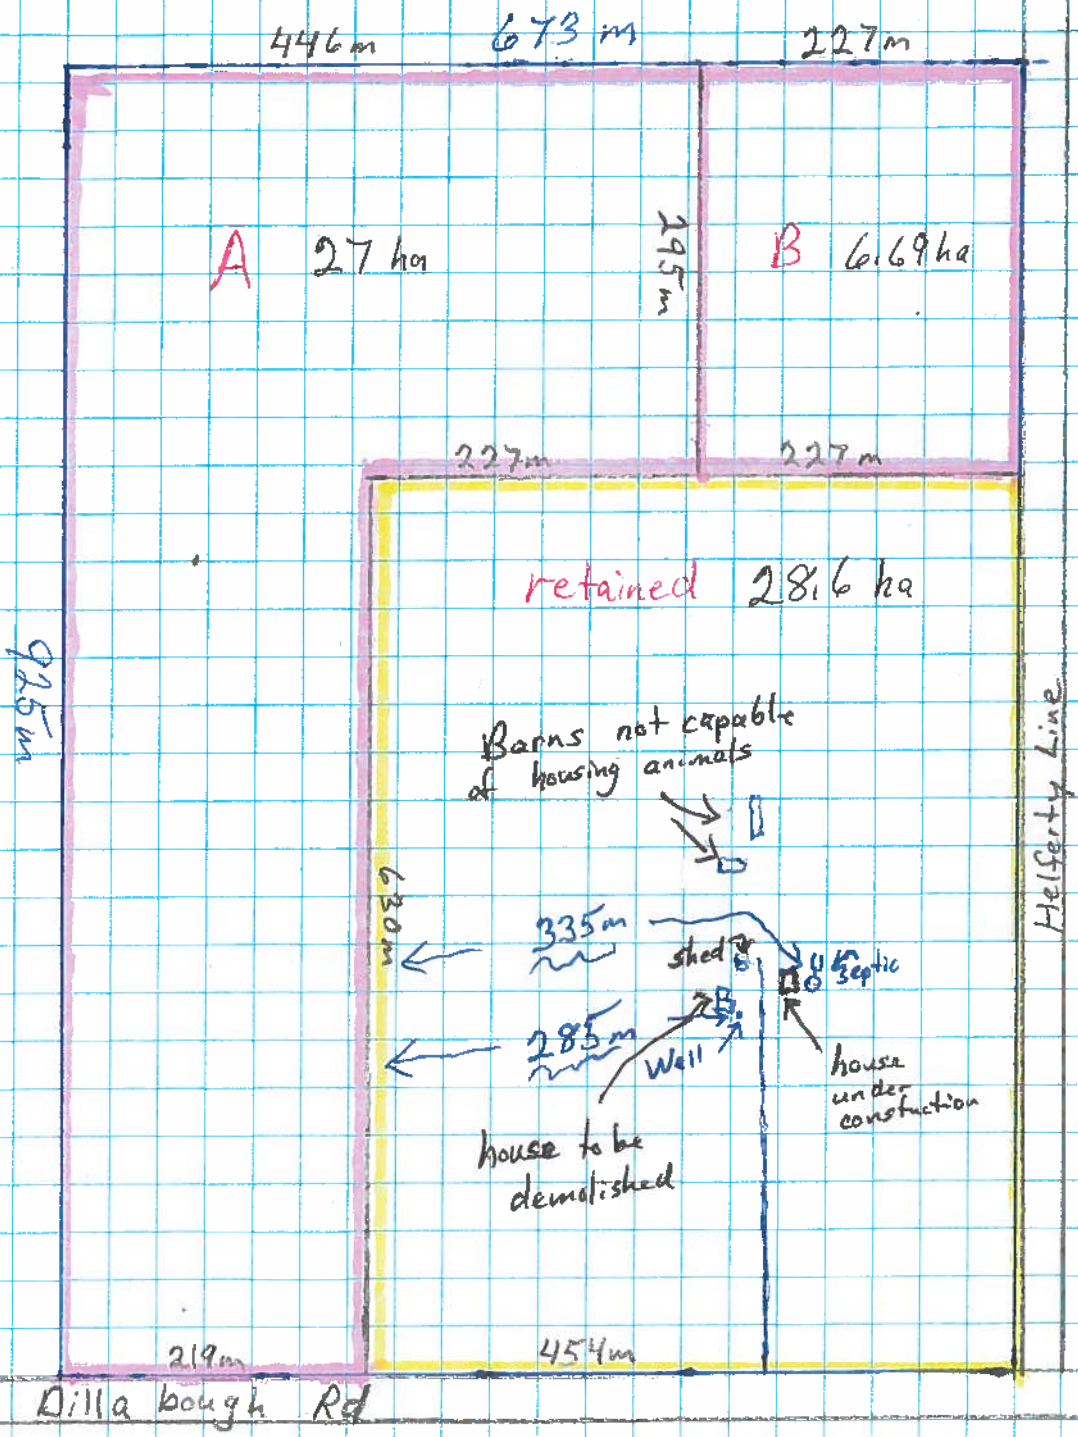 446m 673 m 227m
A 27 ha
295m
B 6.69ha
227m 227m
retained 28.6 ha
925m
Barns not capable
of housing animals
Helferty Line
630m
335m
shed
Septic
285m
Well
house
under
constuction
house to be
demolished
219m 454m
Dilla bough Rd